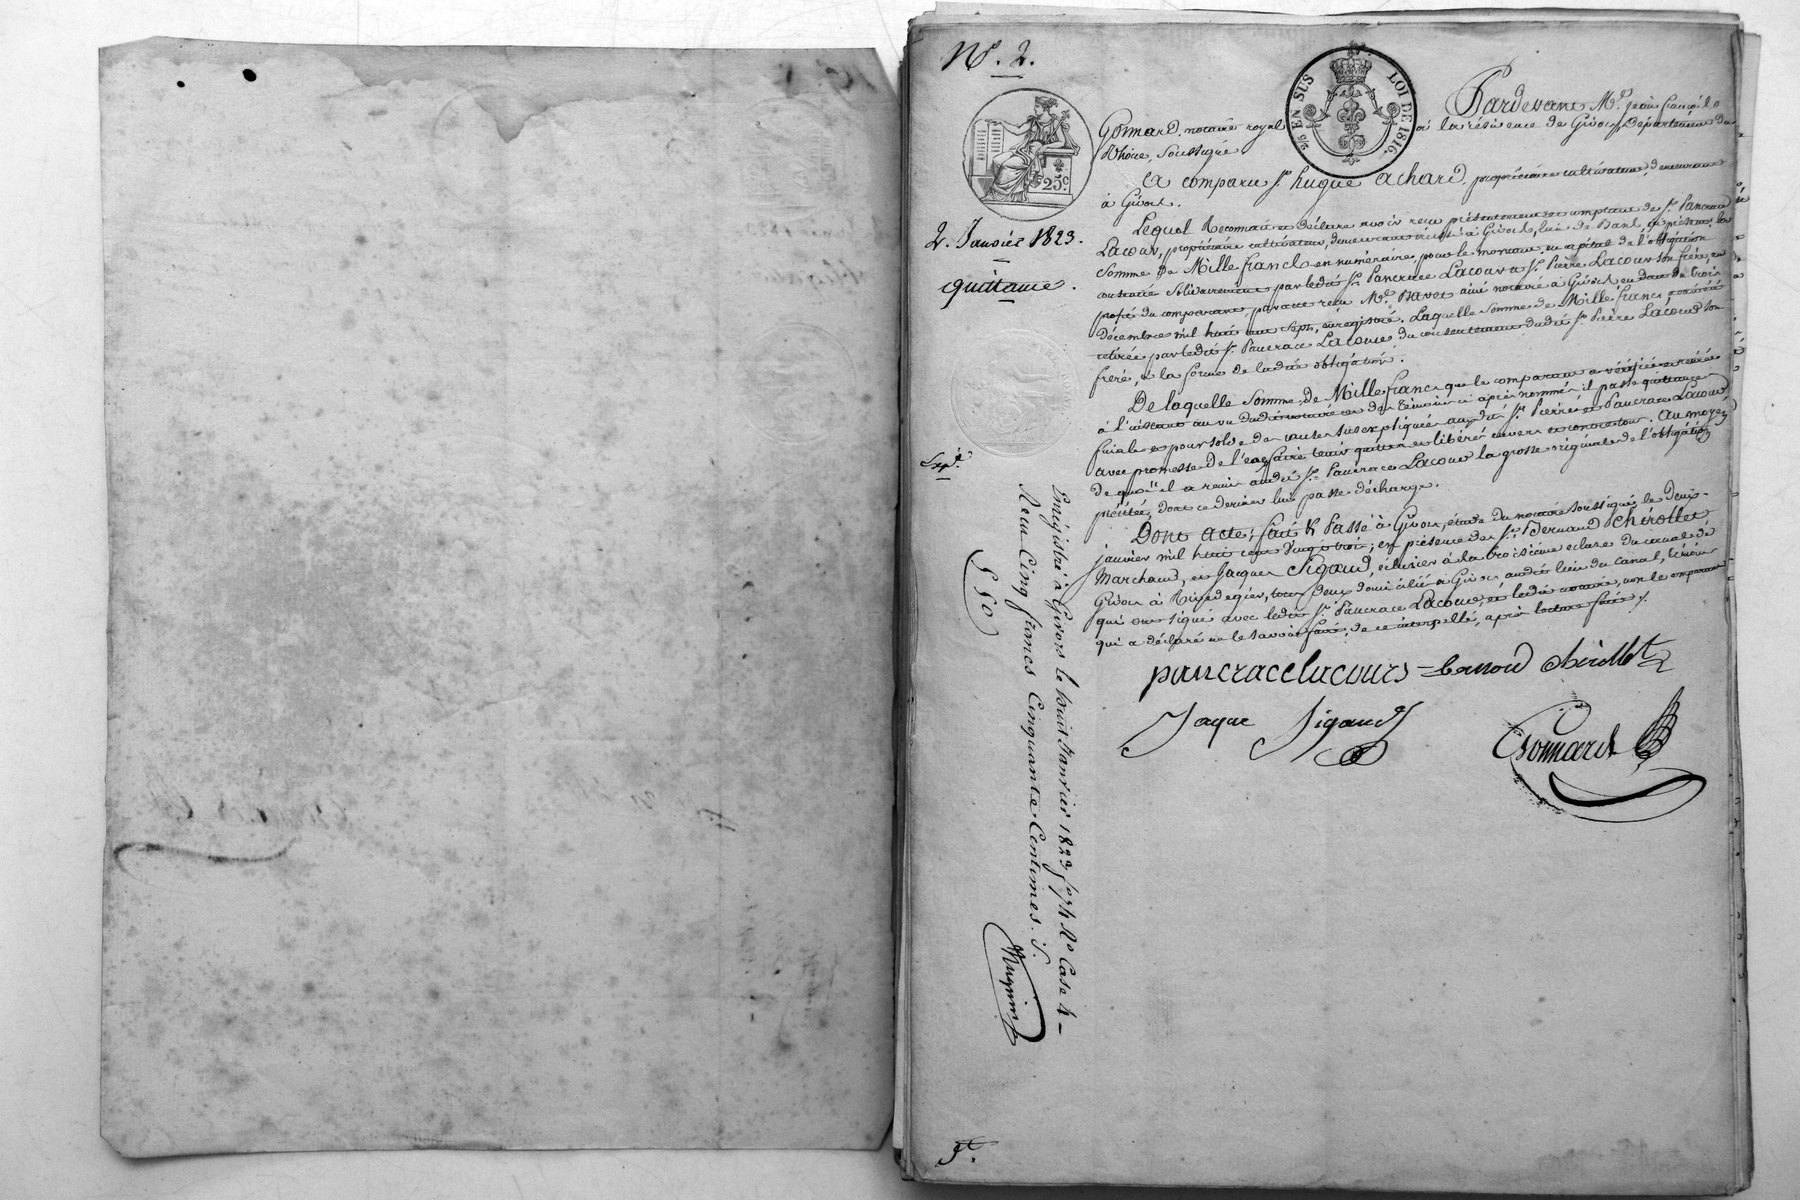 N°. 2.
2/5 EN SUS LOI DE 1816.
25c.
2. Janvier 1823.
quittance.
Expé.
Pardevant Me. Jean françois
Gonnard, notaire royal à la résidence de Givors, Département du
Rhône, soussigné,
Est comparu sr. hugue achard, propriétaire cultivateur, demeurant
à Givors.
Lequel Reconnait et déclare avoir reçu présentement et comptant de sr. Pancrace
Lacour, propriétaire cultivateur, demeurant à Givors, lieu de Bans, ici présent, la
somme de Mille francs en numéraire, pour le montant en capital de l'obligation
contractée solidairement par ledit sr. Pancrace Lacour et sr. Pierre Lacour son frère, au
profit du comparant, par acte reçu Me. aîné notaire à Givors en date du trois
Décembre mil huit cent sept, enregistré. Laquelle somme de Mille francs,
retirée par ledit sr. Pancrace Lacour, du consentement dudit sr. Pierre Lacour son
frère, à la forme de ladite obligation.
De laquelle somme de Mille francs que le comparant a vérifiée et retirée
à l'instant au vu dudit notaire et des témoins ci après nommés il passe quittance
finale et pour solde des causes sus expliquées auxdits srs. Pierre et Pancrace Lacour
avec promesse de les en faire tenir quittes et libérés envers et contre tous; Au moyen
de quoi il a remis audit sr. Pancrace Lacour la grosse originale de l'obligation
précitée, dont ce dernier lui passe décharge.
Dont acte, fait & Passé à Givors, étude du notaire soussigné, le deux
janvier mil huit cent vingt trois; en présence de sr. Bernard Chirollet
Marchand, et Jacques Sigaud, éclusier à la troisième écluse du canal de
Givors à Rivedegier, tous deux domiciliés à Givors, audit lieu du canal, témoins
qui ont signé avec ledit sr. Pancrace Lacour, et ledit notaire, non le comparant
qui a déclaré ne le savoir faire, de ce interpellé, après lecture faite.
pancrace lacours bernard chirollet
Jaque Sigaud
Gonnard
Enrégistré à Givors le huit Janvier 1823, fo 74 Ro Case 4
Reçu Cinq francs Cinquante Centimes.
5 50